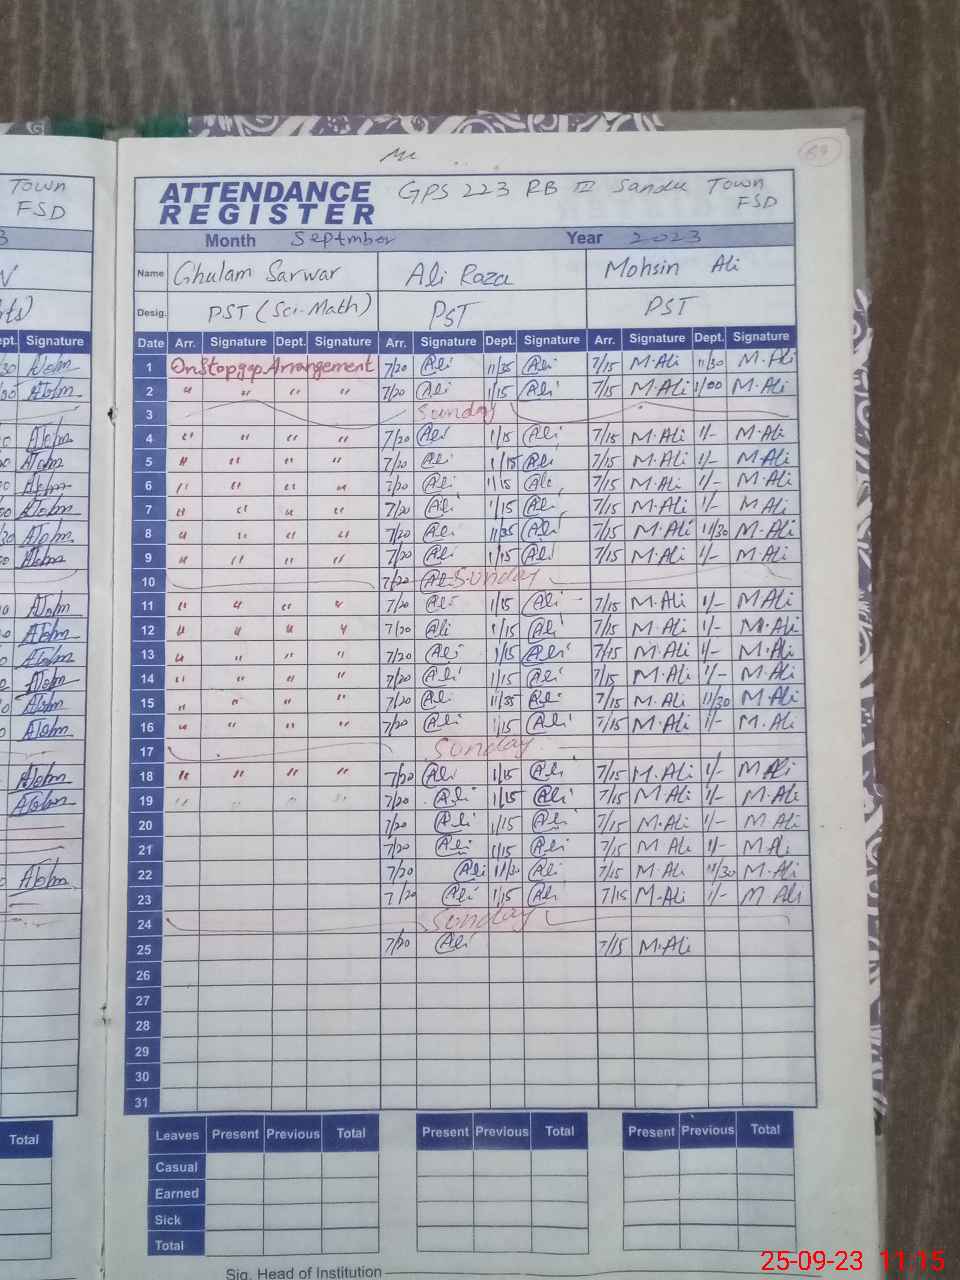 Town
FSD
Signature
67
ATTENDANCE REGISTER GPS 223 RB III Sandu Town FSD
Month Septmber Year 2023
Name Ghulam Sarwar Ali Raza Mohsin Ali
Desig. PST (Sci-Math) PST PST
Date Arr. Signature Dept. Signature Arr. Signature Dept. Signature Arr. Signature Dept. Signature
1 On Stopgap Arrangement 7/20 Ali 11/35 Ali 7/15 M.Ali 11/30 M.Ali
2 " " " " 7/20 Ali 1/15 Ali 7/15 M.Ali 1/00 M.Ali
3 Sunday
4 " " " " 7/20 Ali 1/15 Ali 7/15 M.Ali 1/- M.Ali
5 " " " " 7/20 Ali 1/15 Ali 7/15 M.Ali 1/- M.Ali
6 " " " " 7/20 Ali 1/15 Ali 7/15 M.Ali 1/- M.Ali
7 " " " " 7/20 Ali 1/15 Ali 7/15 M.Ali 1/- M Ali
8 " " " " 7/20 Ali 11/35 Ali 7/15 M.Ali 11/30 M.Ali
9 " " " " 7/20 Ali 1/15 Ali 7/15 M.Ali 1/- M.Ali
10 7/20 Ali Sunday
11 " " " " 7/20 Ali 1/15 Ali 7/15 M.Ali 1/- M Ali
12 " " " " 7/20 Ali 1/15 Ali 7/15 M.Ali 1/- M.Ali
13 " " " " 7/20 Ali 1/15 Ali 7/15 M.Ali 1/- M.Ali
14 " " " " 7/20 Ali 1/15 Ali 7/15 M.Ali 1/- M.Ali
15 " " " " 7/20 Ali 11/35 Ali 7/15 M.Ali 11/30 M Ali
16 " " " " 7/20 Ali 1/15 Ali 7/15 M.Ali 1/- M.Ali
17 Sunday
18 " " " " 7/20 Ali 1/15 Ali 7/15 M.Ali 1/- M Ali
19 " " " " 7/20 Ali 1/15 Ali 7/15 M Ali 1/- M.Ali
20 7/20 Ali 1/15 Ali 7/15 M.Ali 1/- M Ali
21 7/20 Ali 1/15 Ali 7/15 M Ali 1/- M Ali
22 7/20 Ali 11/30 Ali 7/15 M.Ali 11/30 M.Ali
23 7/20 Ali 1/15 Ali 7/15 M.Ali 1/- M Ali
24 Sunday
25 7/20 Ali 7/15 M.Ali
26
27
28
29
30
31
Total
Leaves Present Previous Total Present Previous Total Present Previous Total
Casual
Earned
Sick
Total
Sig. Head of Institution
25-09-23 11:15